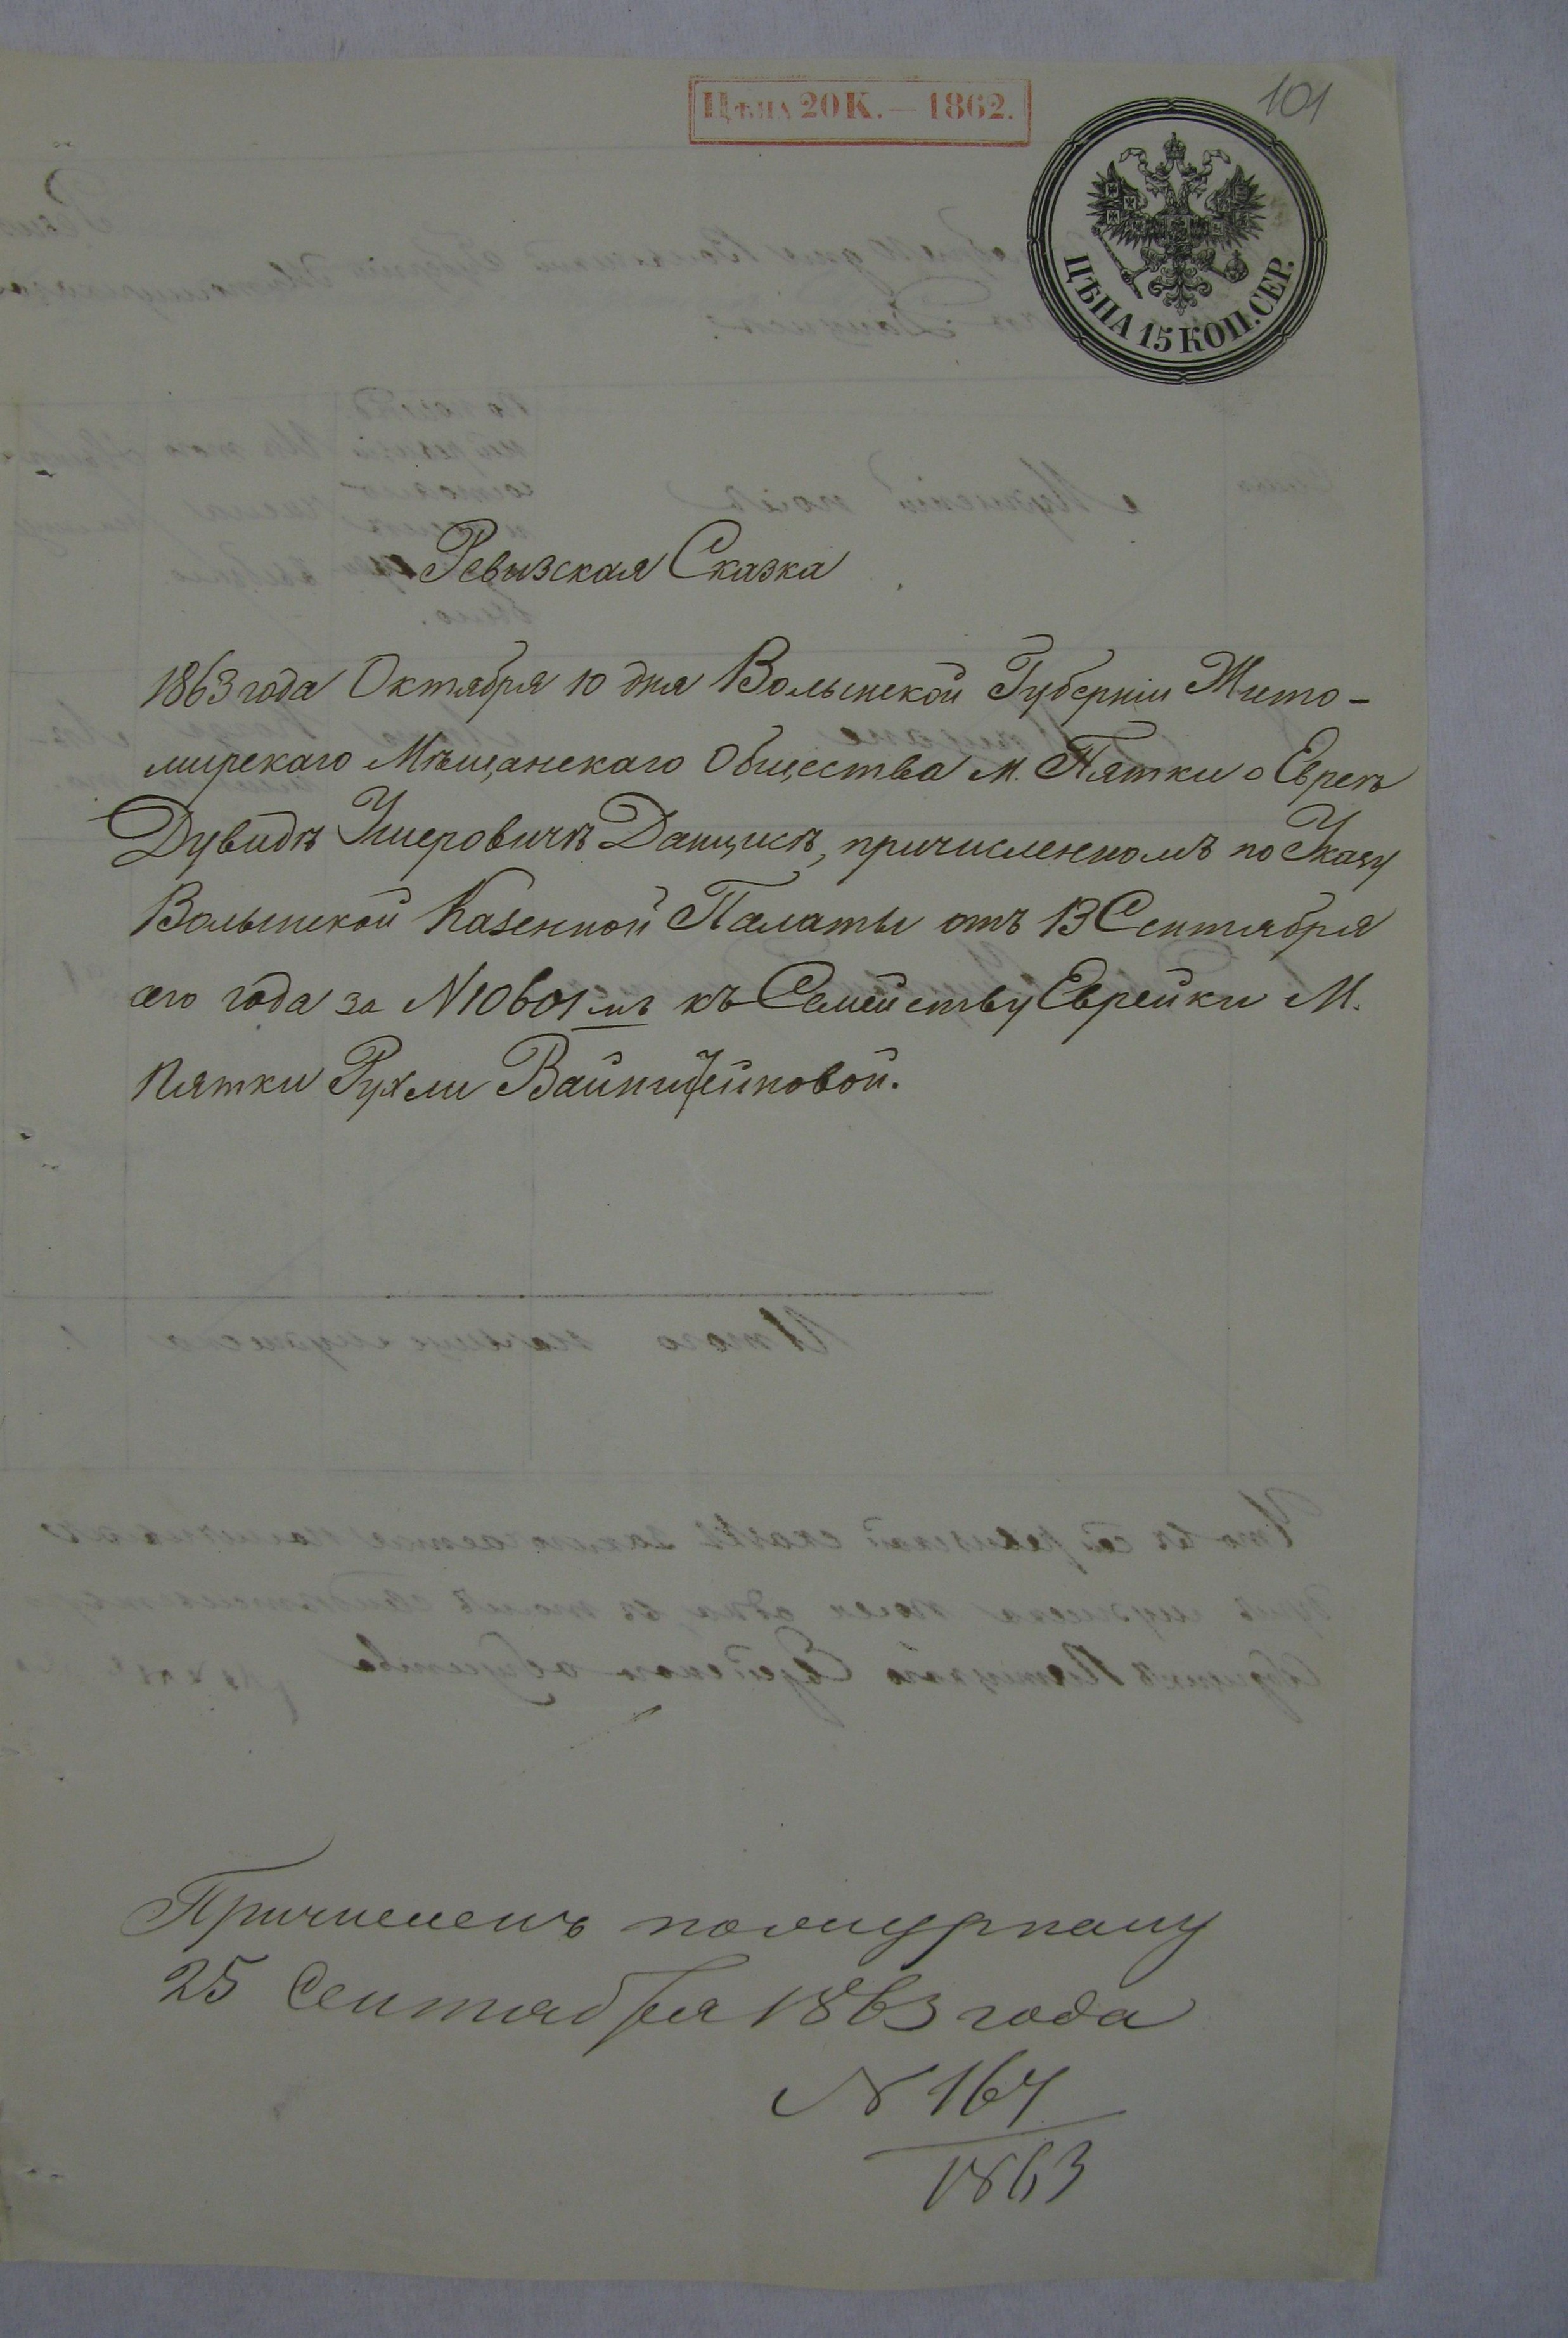 101
Цѣна 20 К. — 1862.
ЦѢНА 15 КОП. СЕР.
Ревизская Сказка
1863 года Октября 10 дня Волынской Губерніи Жито-
мирскаго Мѣщанскаго Общества М. Пятки о Евреѣ
Дувидѣ Ушеровичѣ Данцисѣ, причисленномъ по Указу
Волынской Казенной Палаты отъ 13 Сентября
сего года за N 10601 мъ къ Семейству Еврейки М.
Пятки Рухли Вайнштейновой.
Причисленъ по журналу
25 Сентября 1863 года
N 164
1863